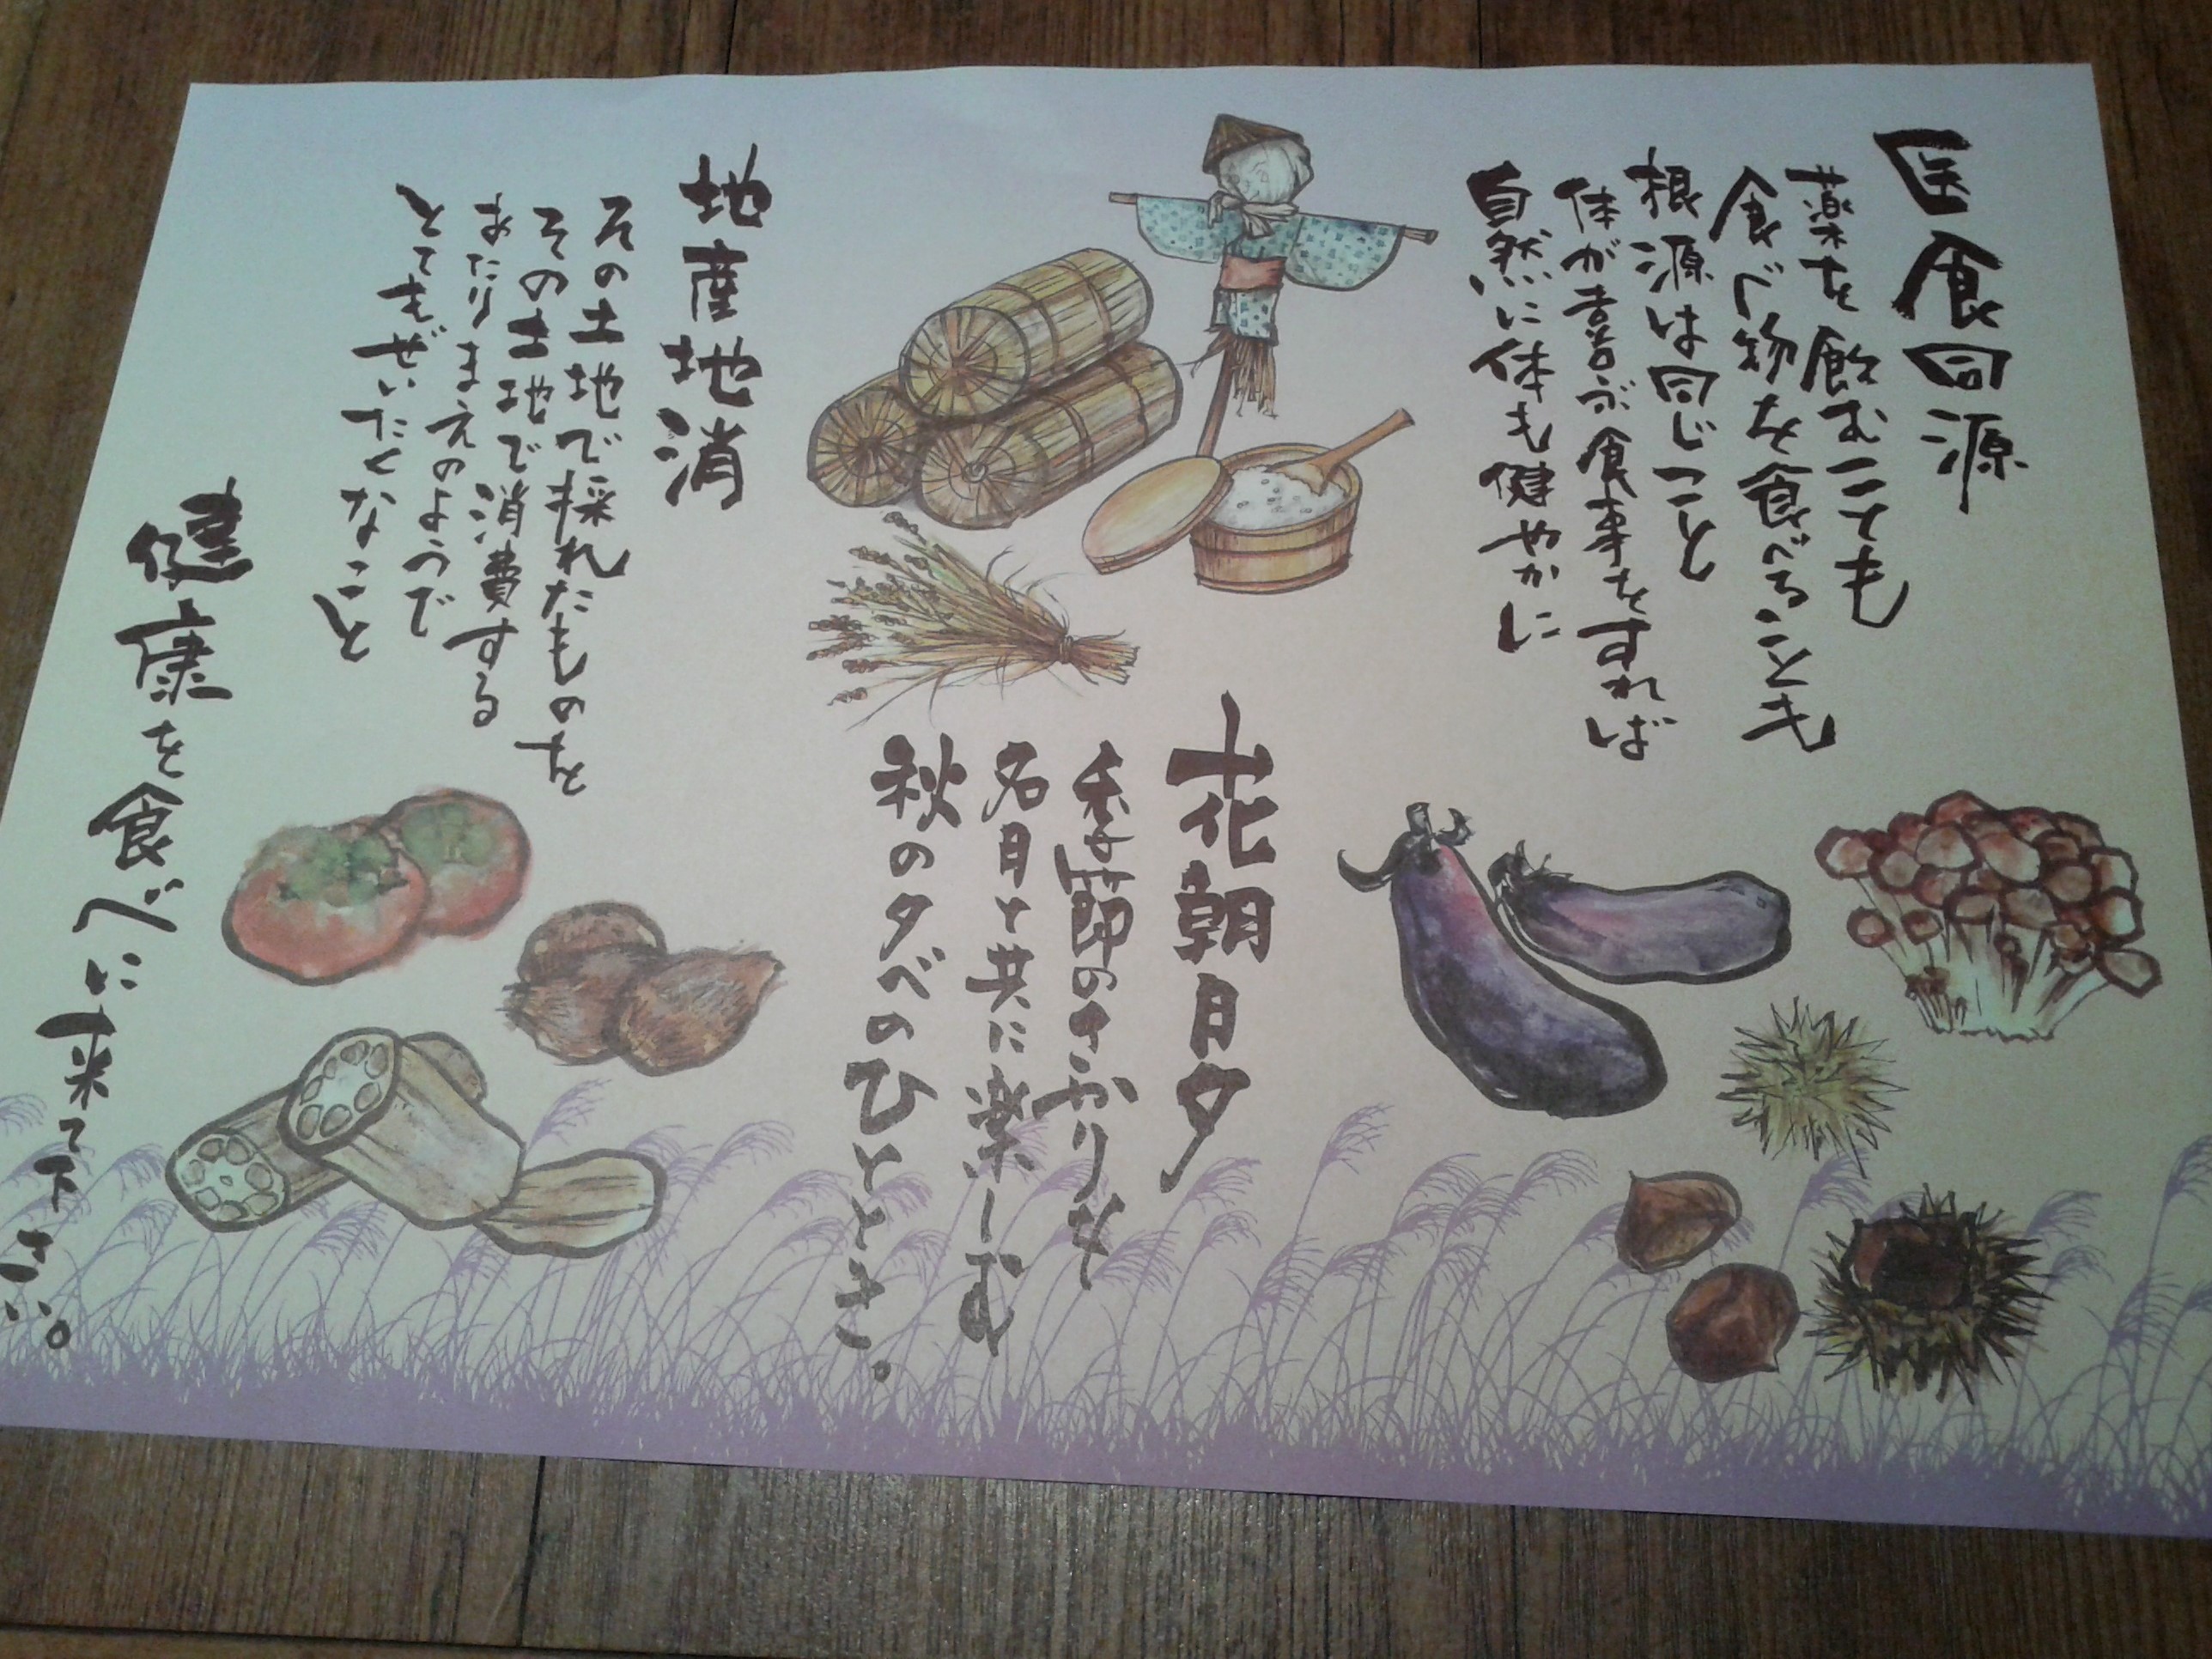 医食同源
薬を飲むことも
食べ物を食べることも
根源は同じこと
体が喜ぶ食事をすれば
自然に体も健やかに
花朝月夕
季節のさかりを
名月と共に楽しむ
秋の夕べのひととき。
地産地消
その土地で採れたものを
その土地で消費する
あたりまえのようで
とてもぜいたくなこと
健康を食べに来て下さい。